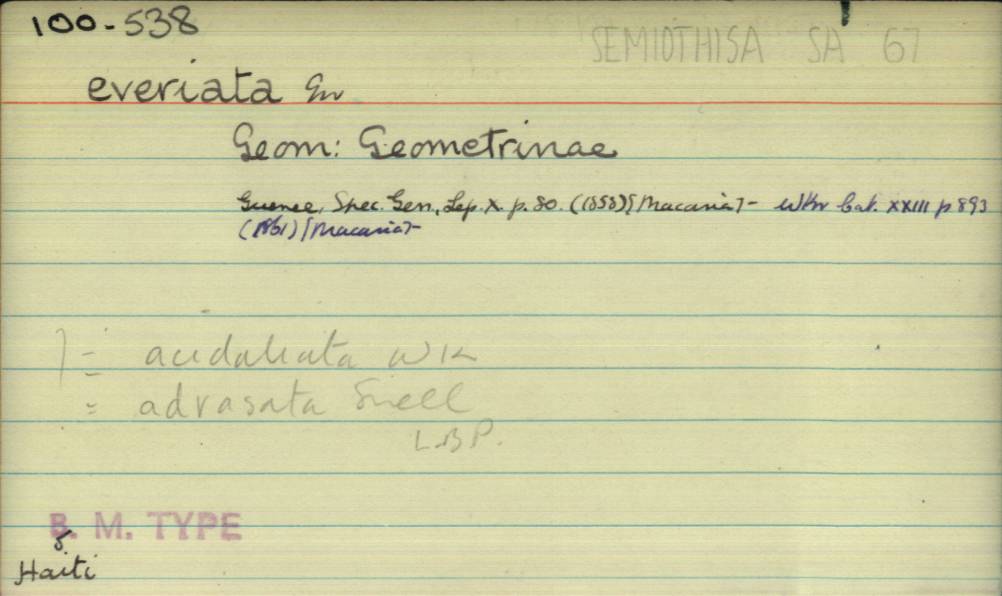 100-538
SEMIOTHISA SA 67
everiata Gn
Geom: Geometrinae
Guenee, Spec. Gen., Lep. X. p. 80. (1858) [Macaria] - Wkr Cat. XXIII p 893
(1861) [Macaria] -
= acidaliata WK
= advasata Snell
L.B.P.
B. M. TYPE
Haiti